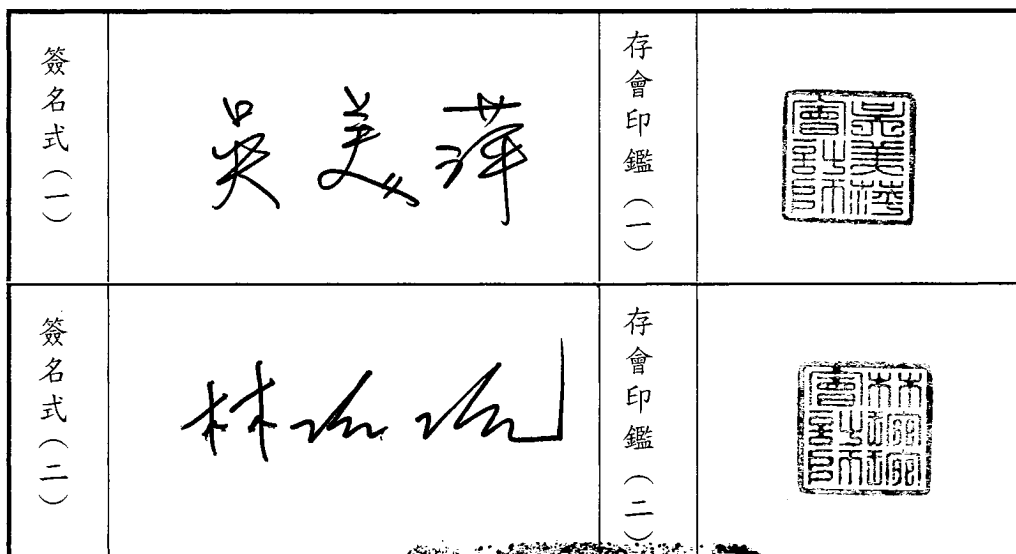 簽名式（一）
吳美萍
存會印鑑（一）
吳美萍
會計師印
簽名式（二）
林琬琬
存會印鑑（二）
林琬琬
會計師印